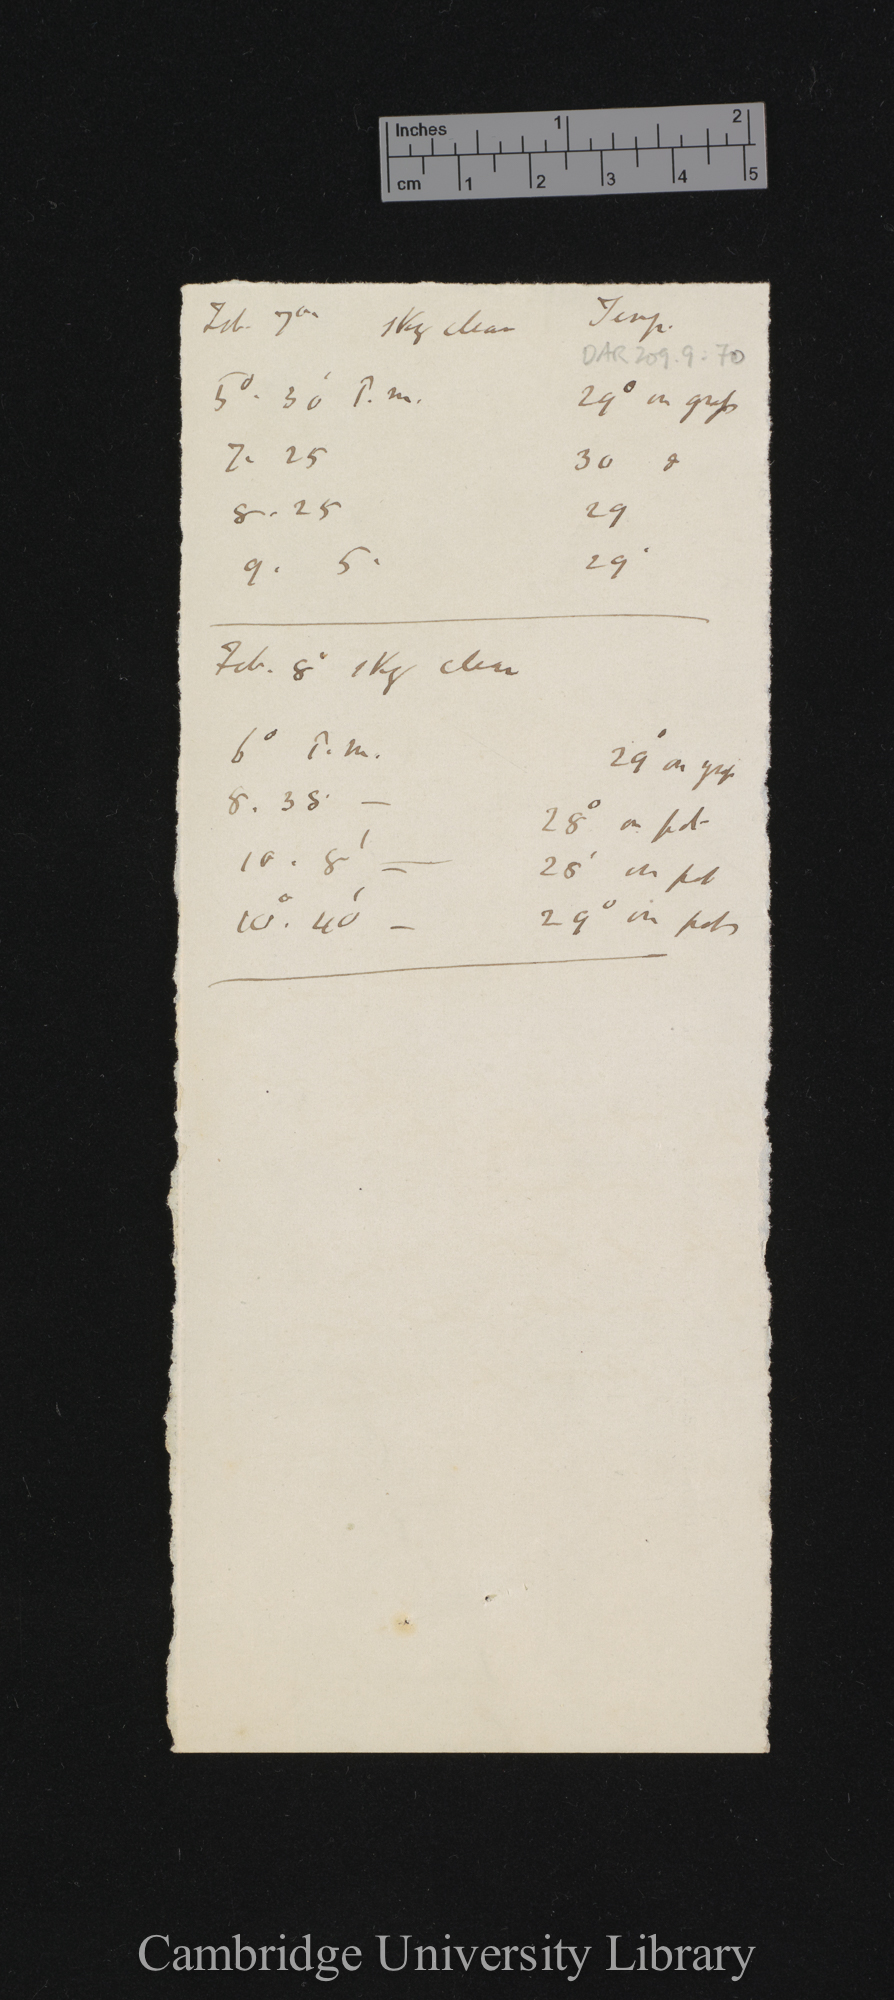 Inches 1 2
cm 1 2 3 4 5
Feb. 7th sky clear Temp.
DAR 209.9:70
5°. 30' P.m. 29° on grass
7. 25 30
8. 25 29
9. 5. 29°
Feb. 8° sky clear
6° P.m. 29° on grass
8. 38 — 28° on pot
10. 8' — 28' on pot
10°. 40' — 29° on pots
Cambridge University Library